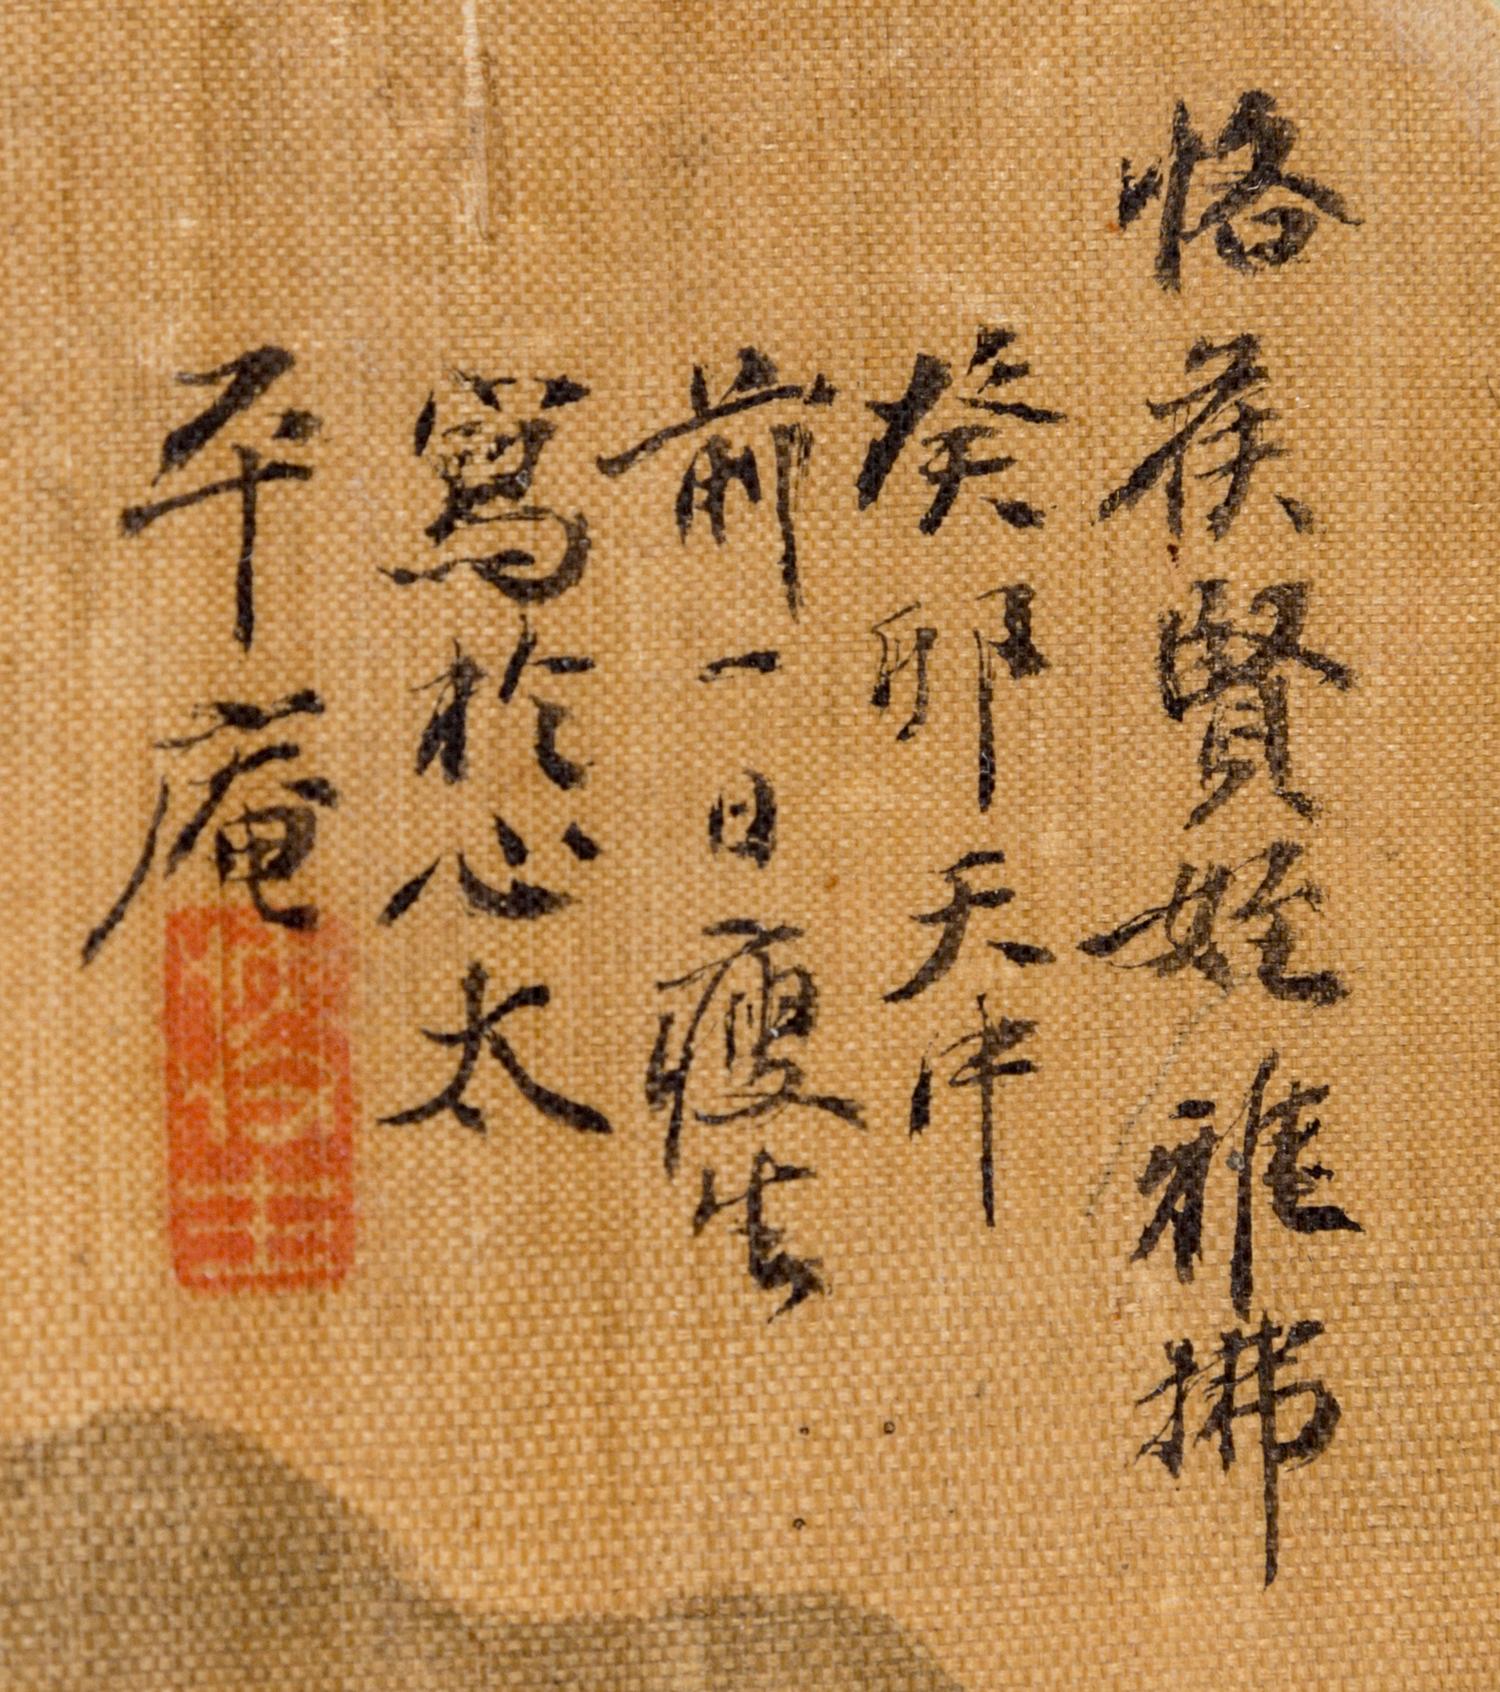 恪矦賢姪雅拂
癸卯天中
前一日瘦生
寫於心太
平庵